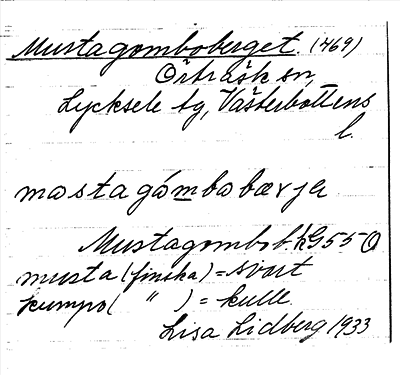 Mustagomboberget. (469)
Örträsk sn,
Lycksele tg, Västerbottens
l.
mastagámbobærja
Mustagombob. hG55O
musta (finska) = svart
kumpo ( " ) = kulle.
Lisa Lidberg 1933